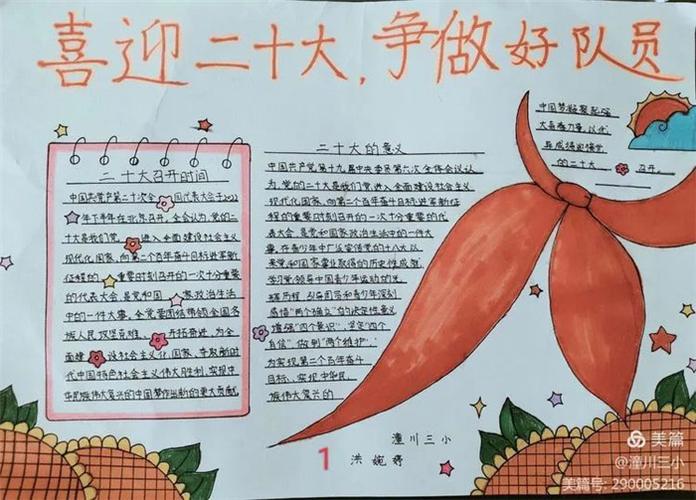 喜迎二十大,争做好队员
二十大召开时间
中国共产党第二十次全国代表大会于2022
年下半年在北京召开。全会认为,党的二
十大是我们党进入全面建设社会主义
现代化国家,向第二个百年奋斗目标进军新
征程的重要时刻召开的一次十分重要
的代表大会,是党和国家政治生活
中的一件大事,全党要团结带领全国各
族人民攻坚克难,开拓奋进,为全
面建设社会主义化国家,争取新时
代中国特色社会主义伟大胜利,实现中
华民族伟大复兴的中国梦作出新的更大贡献
二十大的意义
中国共产党第十九届中央委员第六次全体会议认
为,党的二十大是我们党进入全面建设社会主义
现代化国家,向第二个百年奋斗目标进军新征
程的重要时刻召开的一次十分重要的代
表大会,是党和国家政治生活中的一件大
事,在青少年中广泛宣传党的十八大以
来党和国家事业取得的历史性成就
学习党领导中国青少年运动的光
辉历程,引导团员和青少年深刻
感悟"两个确立"的决定性意义
增强"四个意识",坚定"四个
自信"做到"两个维护",
为实现第二个百年奋斗
目标,实现中华民
族伟大复兴的
中国梦凝聚起强
大青春力量,以优
异成绩迎接党
的二十大召开。
潼川三小
洪婉婷
1
美篇
@潼川三小
美篇号: 290005216